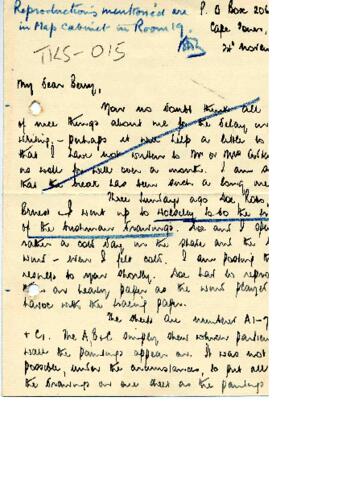 Reproductions mentioned are
in Map cabinet in Room 19.
P.O Box 206
Cape Town,
TKS-015
My Dear Berry,
Your no doubt think all
of nice things about me for the delay in
writing, - perhaps it will help a little to
that I have not written to Mr or Mrs
no well for well over a month. I am
that the break has been such a long one
Three Sundays ago Doc
Ernest & I went up to to do the
of the Bushman drawings. Doc and I
rather a cold day in the shade and the
wind - even I felt cold. I am posting the
results to you shortly. Doc had to
this on heavy paper as the wind played
havoc with the tracing paper.
The sheets are numbered A1-7
+ C1. The A, B & C simply show which
wall the paintings appear on. It was not
possible, under the circumstances, to put all
the drawings on one sheet as the paintings